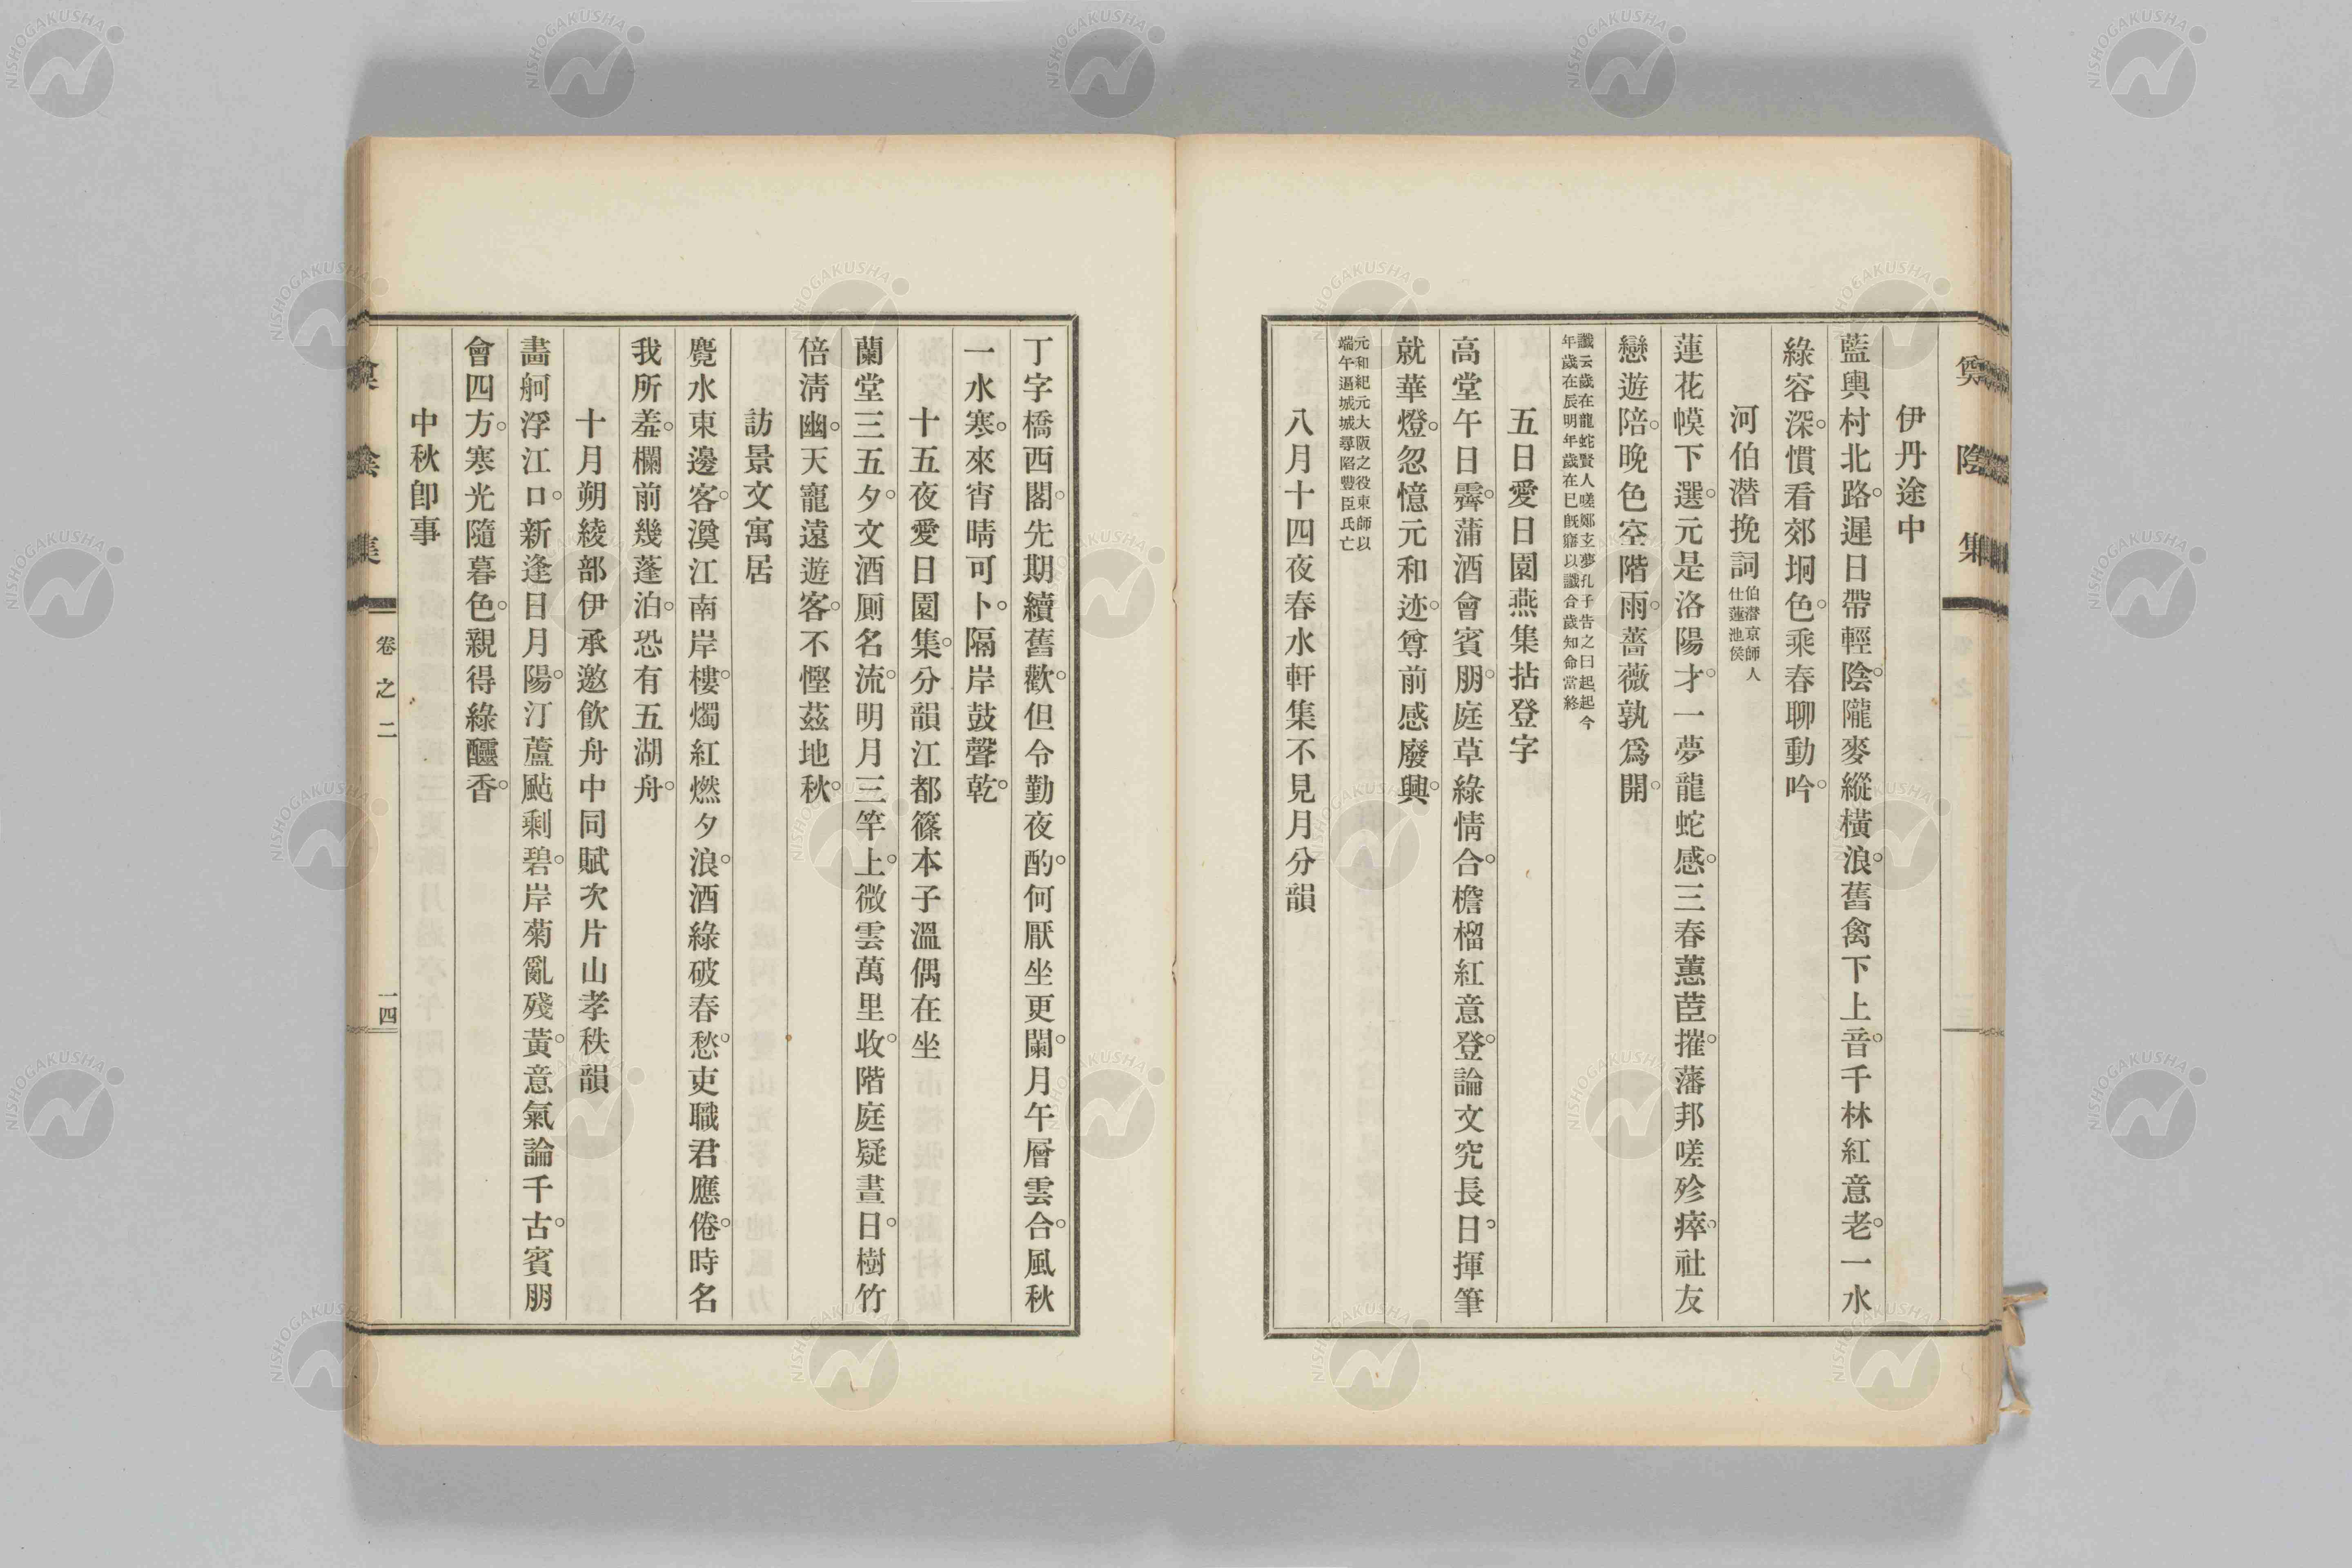 陰集
伊丹途中
藍輿村北路。遲日帶輕陰。隴麥縱橫浪。舊禽下上音。千林紅意老。一水
綠容深。慣看郊坰色。乘春聊動吟。
河伯潛挽詞 伯潛京師人
仕蓮池侯
蓮花幙下選。元是洛陽才。一夢龍蛇感。三春薏苣摧。藩邦嗟殄瘁。社友
戀遊陪。晚色空階雨。薔薇孰爲開。
讖云歲在龍蛇賢人嗟鄭玄夢孔子告之曰起起今
年歲在辰明年歲在巳旣寤以讖合歲知命當終
五日愛日園燕集拈登字
高堂午日霽。蒲酒會賓朋。庭草綠情合。檐榴紅意登。論文究長日。揮筆
就華燈。忽憶元和迹。尊前感廢興。
元和紀元大阪之役東師以
端午逼城城尋陷豐臣氏亡
八月十四夜春水軒集不見月分韻
丁字橋西閣。先期續舊歡。但令勤夜酌。何厭坐更闌。月午層雲合。風秋
一水寒。來宵晴可卜。隔岸鼓聲乾。
十五夜愛日園集。分韻江都篠本子溫偶在坐
蘭堂三五夕。文酒厠名流。明月三竿上。微雲萬里收。階庭疑晝日。樹竹
倍淸幽。天寵遠遊客。不慳茲地秋。
訪景文寓居
甍水東邊客。澫江南岸樓。燭紅燃夕浪。酒綠破春愁。吏職君應倦。時名
我所羞。欄前幾蓬泊。恐有五湖舟。
十月朔綾部伊承邀飮舟中同賦次片山孝秩韻
畵舸浮江口。新逢日月陽。汀蘆颭剩碧。岸菊亂殘黃。意氣論千古。賓朋
會四方。寒光隨暮色。親得綠醽香。
中秋卽事
陰集
卷之二
一四